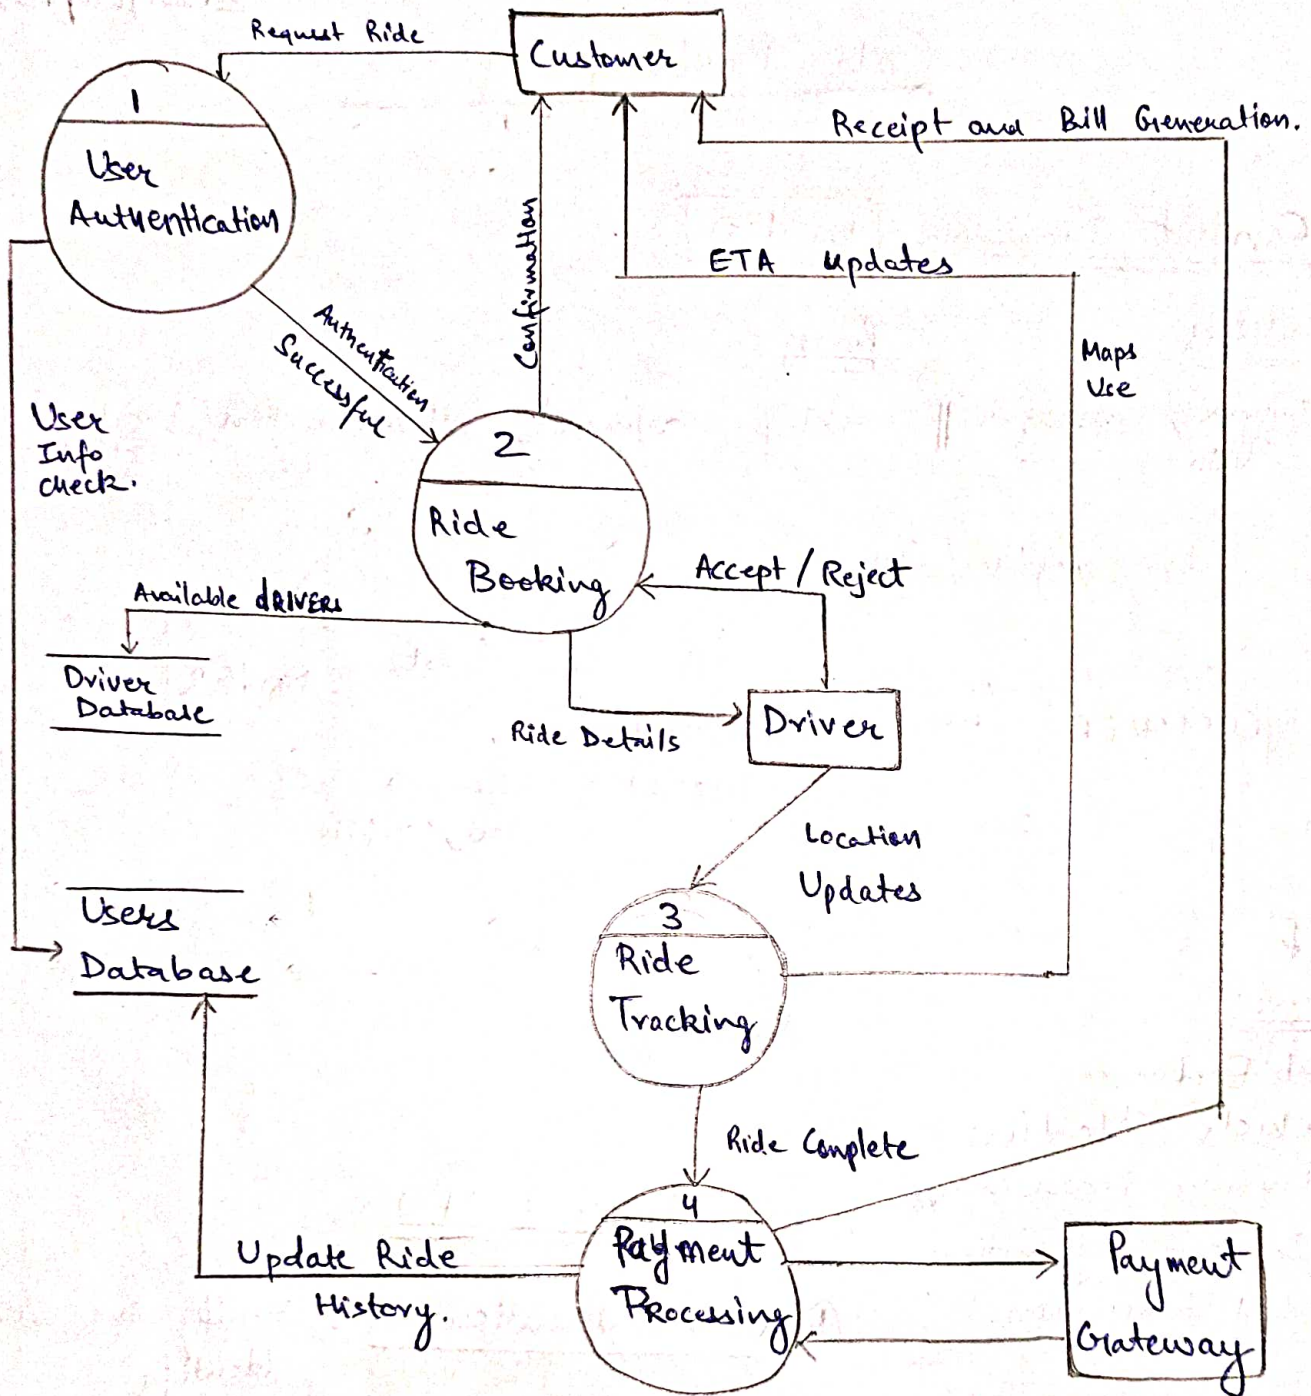 Request Ride
Customer
1
User
Authentication
Receipt and Bill Generation.
Confirmation
ETA updates
Authentication
Successful
Maps
Use
User
Info
check.
2
Ride
Booking
Accept / Reject
Available dRIVERs
Driver
Database
Ride Details
Driver
Location
Updates
Users
Database
3
Ride
Tracking
Ride Complete
4
Payment
Processing
Update Ride
History.
Payment
Gateway